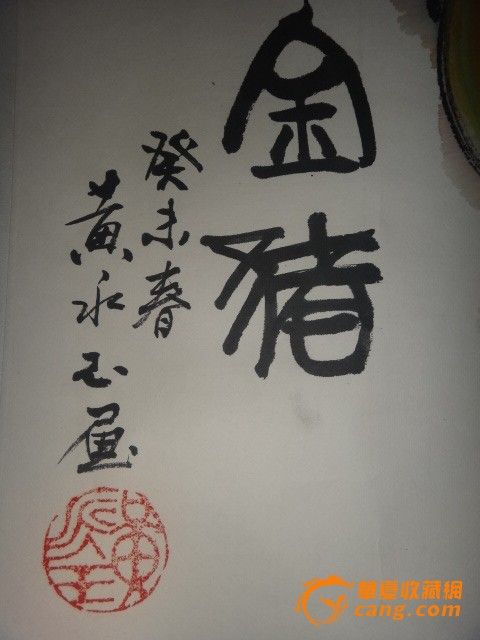 金猪
癸未春
黄永玉画
華夏收藏網
cang.com